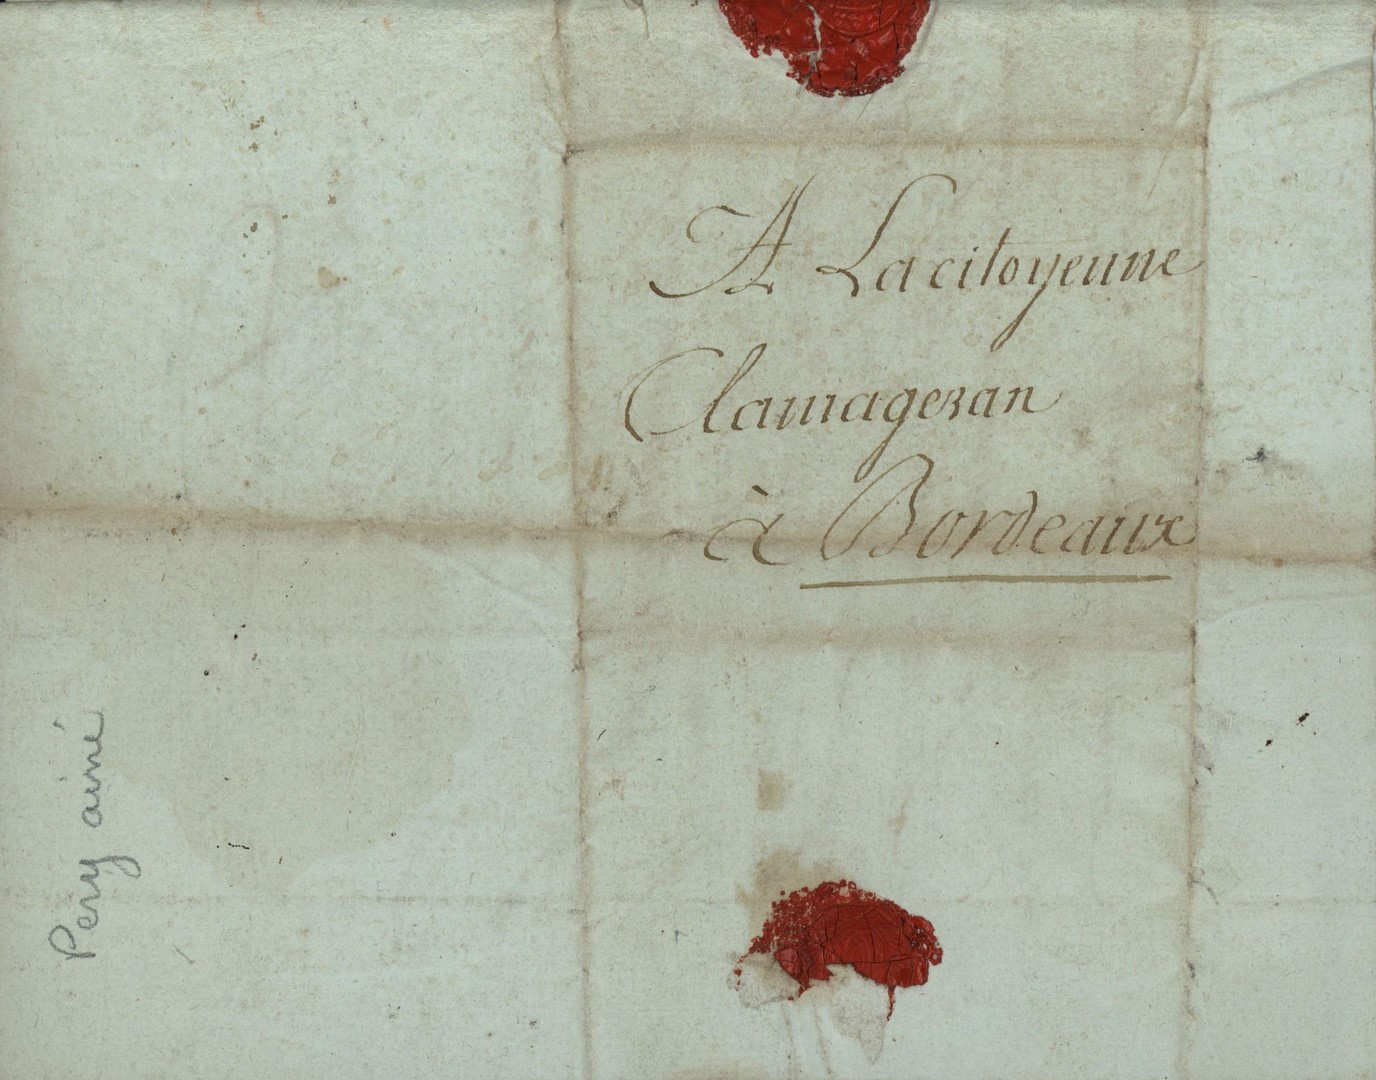 A La citoyenne
Clamageran
à Bordeaux
Pery ainé